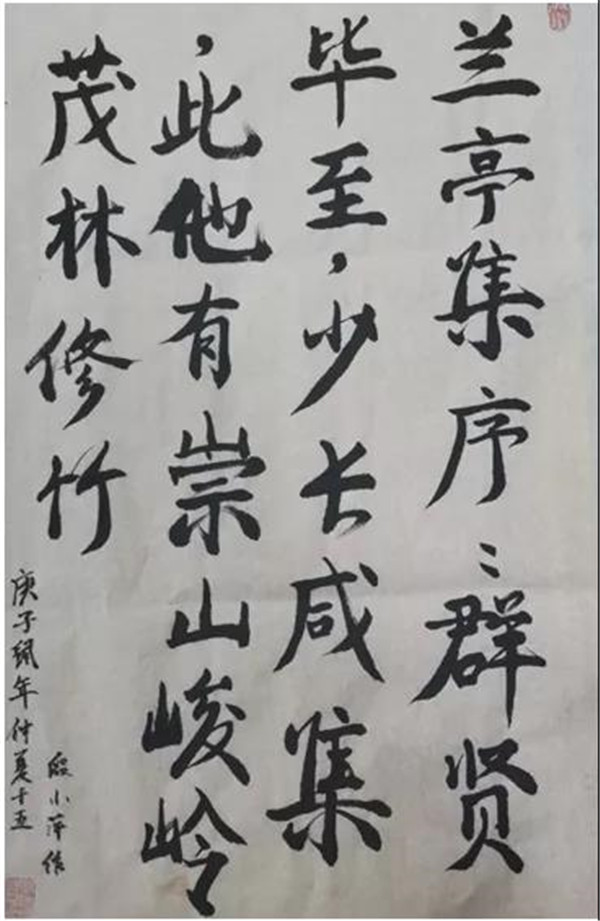 兰亭集序：群贤
毕至，少长咸集
，此他有崇山峻岭
茂林修竹
庚子鼠年仲夏十五
殷小萍作